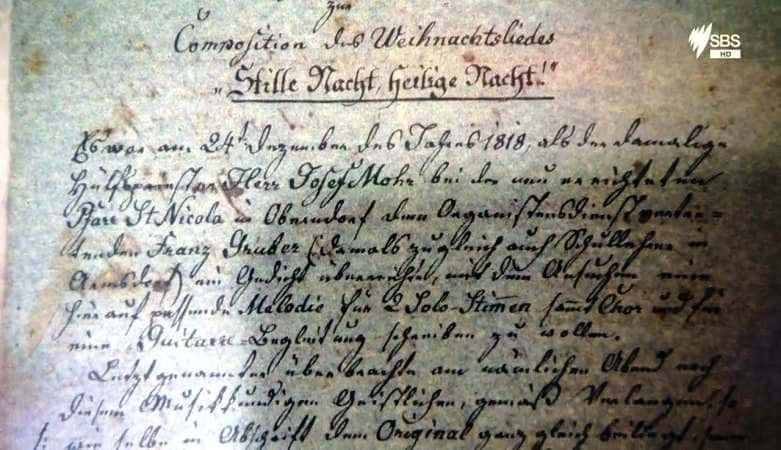 zur
SBS
HD
Composition des Weihnachtsliedes
„Stille Nacht, heilige Nacht!“
Es war am 24t Dezember des Jahres 1818, als der damalige
Hülfspriester Herr Josef Mohr bei der neu errichteten
Pfarr St Nicola in Oberndorf dem Organistendienst vertre=
tenden Franz Gruber (damals zugleich auch Schullehrer in
Arnsdorf) ein Gedicht überreichte, mit dem Ansuchen eine
hierauf passende Melodie für 2 Solo-Stimmen sammt Chor und für
eine Guitarre=Begleitung schreiben zu wollen.
Letztgenannter überbrachte am nämlichen Abend noch
diesem Musikkundigen Geistlichen, gemäß Verlangen, so
wie selbe in Abschrift dem Original ganz gleich beiliegt,